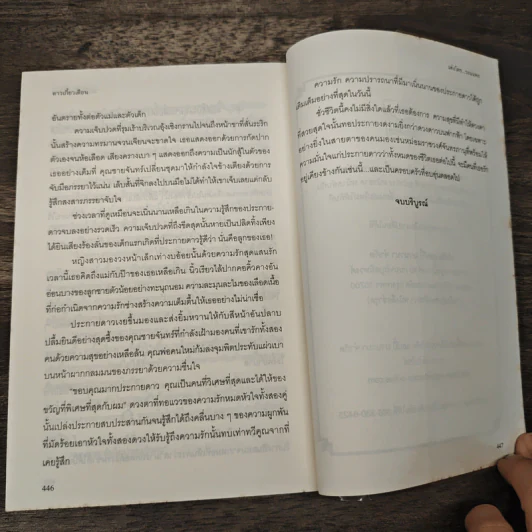 ดาวเกี้ยวเดือน
อันตรายทั้งต่อตัวแม่และตัวเด็ก
ความเจ็บปวดที่รุมเร้าบริเวณอุ้งเชิงกรานไปจนถึงหน้าขาที่สั่นระริก
นั้นสร้างความทรมานจวนเจียนจะขาดใจ เธอแสดงออกด้วยการกัดปาก
ตัวเองจนห้อเลือด เสียงครางเบา ๆ แสดงออกถึงความเป็นนักสู้ในตัวของ
เธออย่างเต็มที่ คุณชายจันทร์เปลี่ยนชุดมาให้กำลังใจข้างเตียงด้วยการ
จับมือภรรยาไว้แน่น เล็บสั้นที่จิกลงไปบนมือไม่ได้ทำให้เขาเจ็บเลยแต่กลับ
รู้สึกสงสารภรรยาจับใจ
ช่วงเวลาที่ดูเหมือนจะเนิ่นนานเหลือเกินในความรู้สึกของประกาย-
ดาวจบลงอย่างรวดเร็ว ความเจ็บปวดที่ถึงขีดสุดนั้นหายเป็นปลิดทิ้งเพียง
ได้ยินเสียงร้องลั่นของเด็กแรกเกิดที่ประกายดาวรู้ดีว่า นั่นคือลูกของเธอ!
หญิงสาวมองวงหน้าเล็กเท่างบอ้อยนั้นด้วยความรู้สึกสุดแสนรัก
เวลานี้เธอคิดถึงแม่กับป้าของเธอเหลือเกิน นิ้วเรียวไล้ปากคอคิ้วคางอัน
อ่อนบางของลูกชายตัวน้อยอย่างทะนุถนอม ความละมุนละไมของเลือดเนื้อ
ที่ก่อกำเนิดจากความรักช่างสร้างความเต็มตื้นให้เธออย่างไม่น่าเชื่อ
ประกายดาวเงยขึ้นมองและส่งยิ้มหวานให้กับสีหน้าอันปลาบ
ปลื้มยินดีอย่างสุดซึ้งของคุณชายจันทร์ที่กำลังเฝ้ามองคนที่เขารักทั้งสอง
คนด้วยความสุขอย่างเหลือล้น คุณพ่อคนใหม่ก้มลงจุมพิตประทับแผ่วเบา
บนหน้าผากกลมมนของภรรยาด้วยความชื่นใจ
"ขอบคุณมากประกายดาว คุณเป็นคนที่วิเศษที่สุดและได้ให้ของ
ขวัญที่พิเศษที่สุดกับผม" ดวงตาที่ทอแววของความรักหมดหัวใจทั้งสองคู่
นั้นเปล่งประกายสบประสานกันจนรู้สึกได้ถึงคลื่นบาง ๆ ของความผูกพัน
ที่มัดร้อยเอาหัวใจทั้งสองดวงให้รับรู้ถึงความรักนั้นทบเท่าทวีคูณจากที่
เคยรู้สึก
446
ความรัก ความปรารถนาที่มีมาเนิ่นนานของประกายดาวได้ถูก
เติมเต็มอย่างที่สุดในวันนี้
ชั่วชีวิตนี้คงไม่มีสิ่งใดแล้วที่เธอต้องการ
อยู่เคียงข้างกันเช่นนี้...และเป็นครอบครัวที่อบอุ่นตลอดไป
จบบริบูรณ์
447